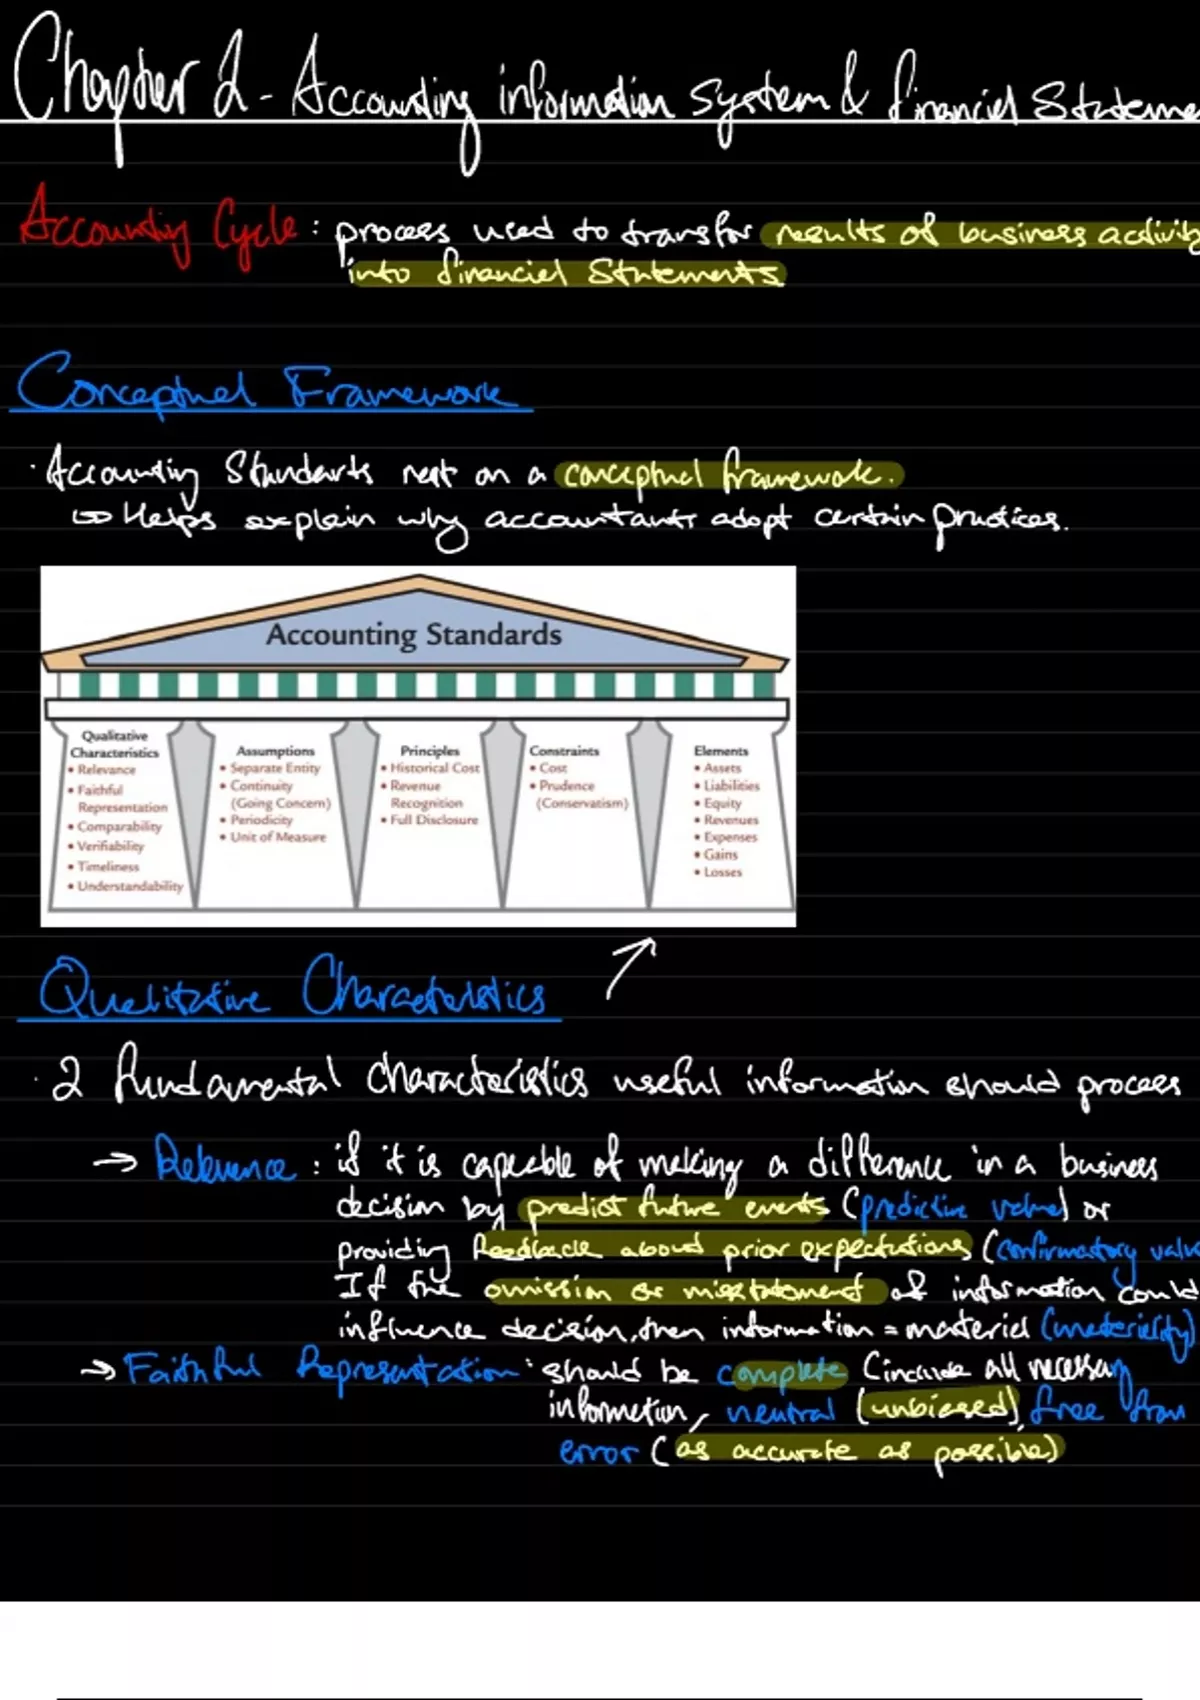 Chapter 2 - Accounting information system & financial Stateme
Accounting Cycle : process used to transfer results of business activit
into financial Statements
Conceptual Framework
· Accounting Standards rest on a conceptual framework.
↳ Helps explain why accountants adopt certain practices.
Accounting Standards
Qualitative
Characteristics
• Relevance
• Faithful
Representation
• Comparability
• Verifiability
• Timeliness
• Understandability
Assumptions
• Separate Entity
• Continuity
(Going Concern)
• Periodicity
• Unit of Measure
Principles
• Historical Cost
• Revenue
Recognition
• Full Disclosure
Constraints
• Cost
• Prudence
(Conservatism)
Elements
• Assets
• Liabilities
• Equity
• Revenues
• Expenses
• Gains
• Losses
Qualitative Characteristics
· 2 fundamental characteristics useful information should process
→ Relevance : if it is capable of making a difference in a business
decision by predict future events (predictive value) or
providing feedback about prior expectations (confirmatory valu
If the omission or misstatement of information could
influence decision, then information = material (materiality)
→ Faithful Representation : should be complete (include all necessary
information, neutral (unbiased), free from
error (as accurate as possible)